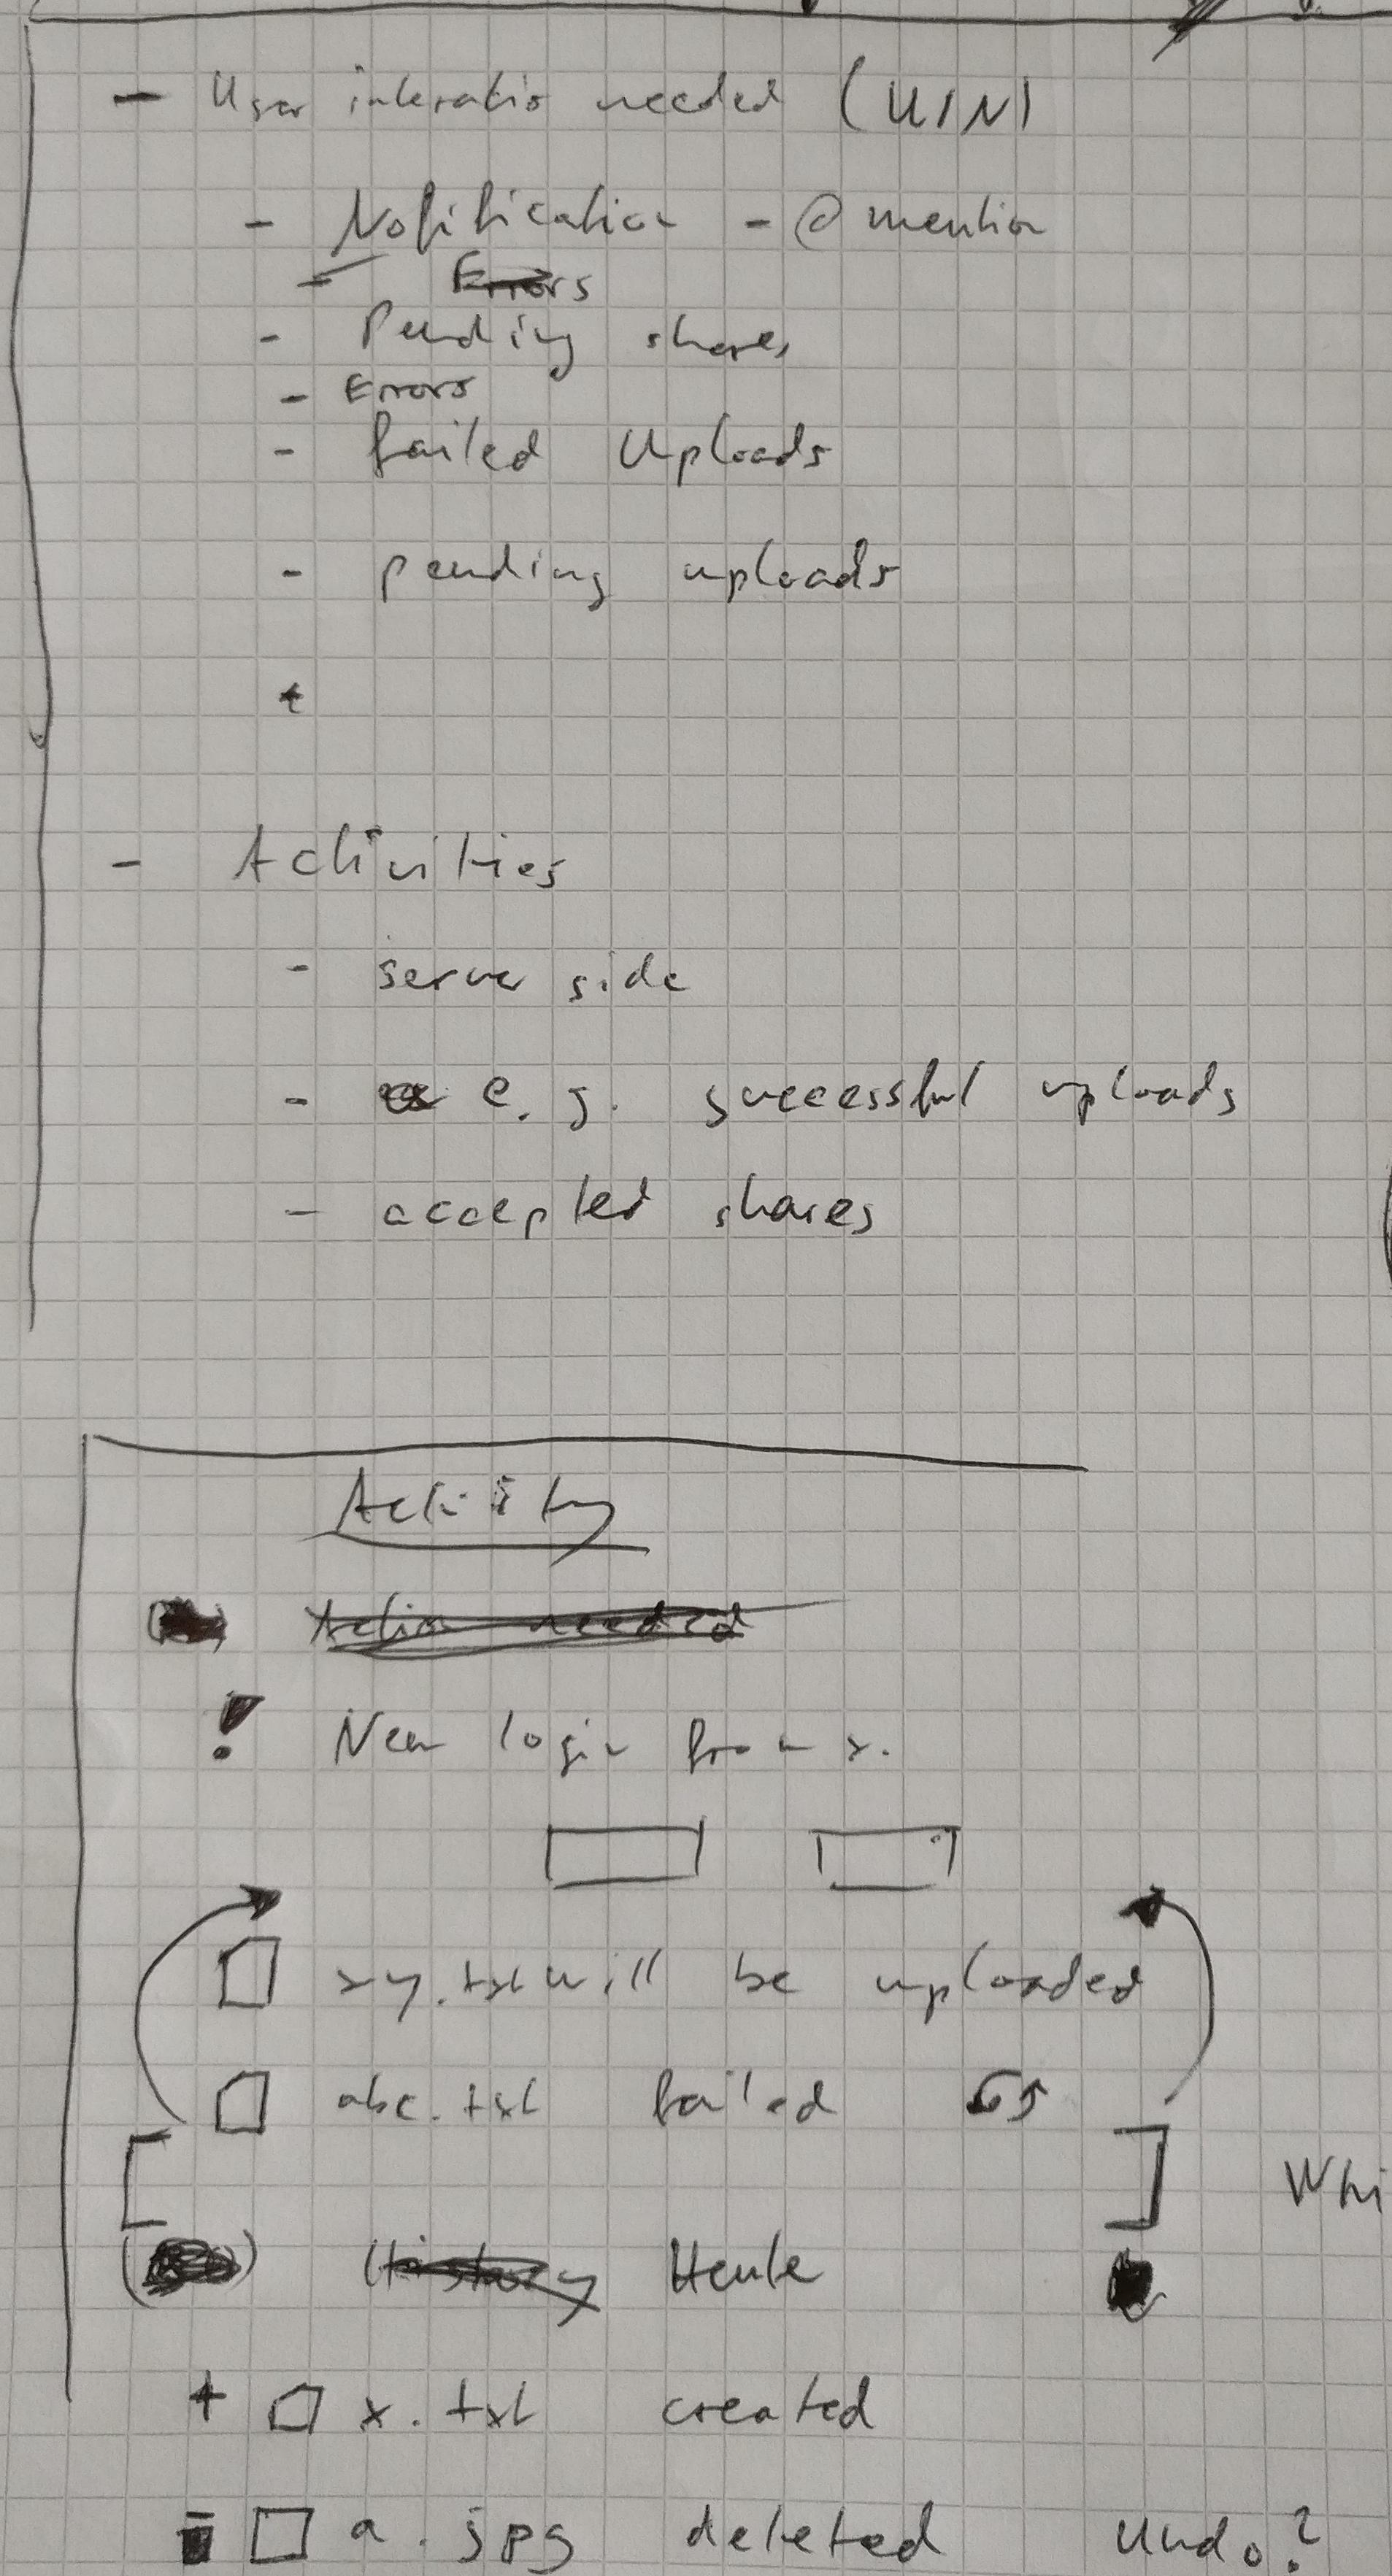 - User interatio needed (UIN)
- Notification - @mention
- Errors
- Pending shares
- Errors
- failed Uploads
- pending uploads
+
- Activities
- server side
- e.g. successful uploads
- accepted shares
Activity
Action needed
! New login from x.
xy.txt will be uploaded
abc.txt failed
[ ] Whi
( ) History Heute
+ x.txt created
a.jpg deleted Undo?